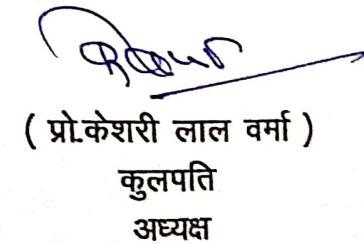 ( प्रो.केशरी लाल वर्मा )
कुलपति
अध्यक्ष